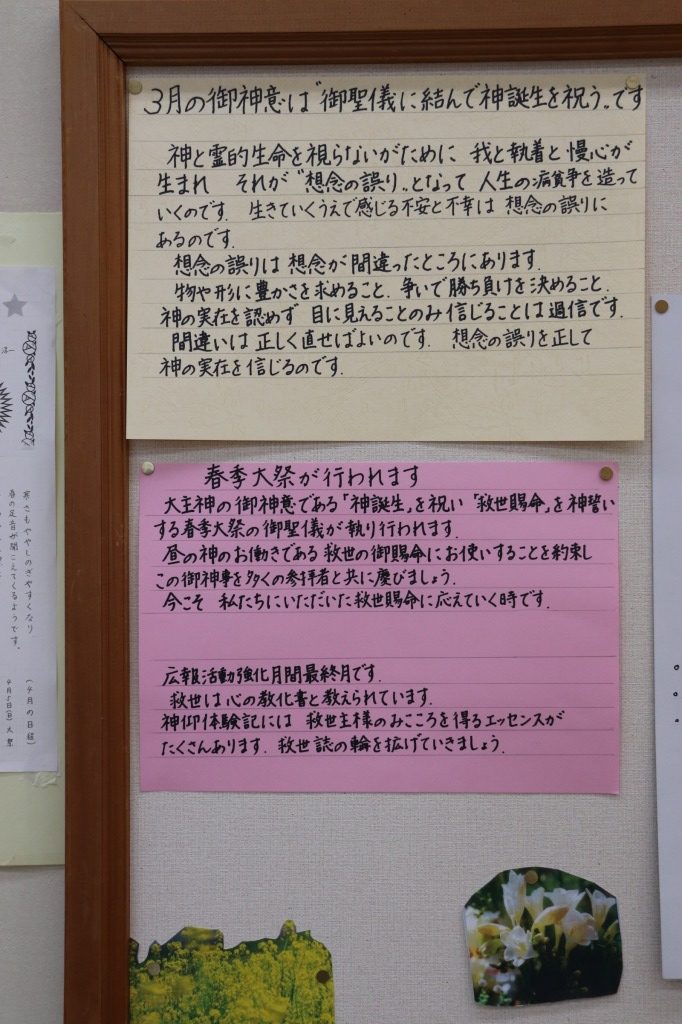 3月の御神意は"御聖儀に結んで神誕生を祝う"です
神と霊的生命を視らないがために 我と執着と慢心が
生まれ それが"想念の誤り"となって 人生の病貧争を造って
いくのです. 生きていくうえで感じる不安と不幸は 想念の誤りに
あるのです.
想念の誤りは 想念が間違ったところにあります.
物や形に豊かさを求めること. 争いで勝ち負けを決めること.
神の実在を認めず 目に見えることのみ信じることは過信です.
間違いは 正しく直せばよいのです. 想念の誤りを正して
神の実在を信じるのです.
春季大祭が行われます
大主神の御神意である「神誕生」を祝い 「救世賜命」を神誓い
する春季大祭の御聖儀が執り行われます.
昼の神のお働きである 救世の御賜命にお使いすることを約束し
この御神事を多くの参拝者と共に慶びましょう.
今こそ 私たちにいただいた救世賜命に応えていく時です.
広報活動強化月間最終月です.
救世は心の教化書と教えられています.
神仰体験記には 救世主様のみこころを得るエッセンスが
たくさんあります. 救世誌の輪を拡げていきましょう.
寒さもややしのぎやすくなり
春の足音が聞こえてくるようです.
(4月の日程)
4月5日(日) 大祭